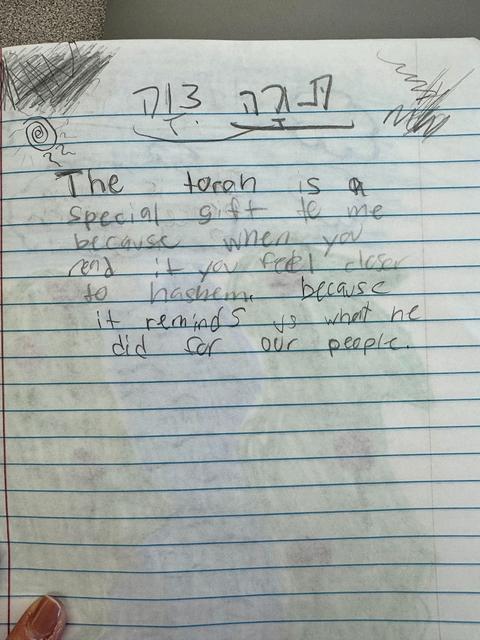 תורה צוה
The torah is a
special gift to me
because when you
read it you feel closer
to hashem. because
it reminds us what he
did for our people.